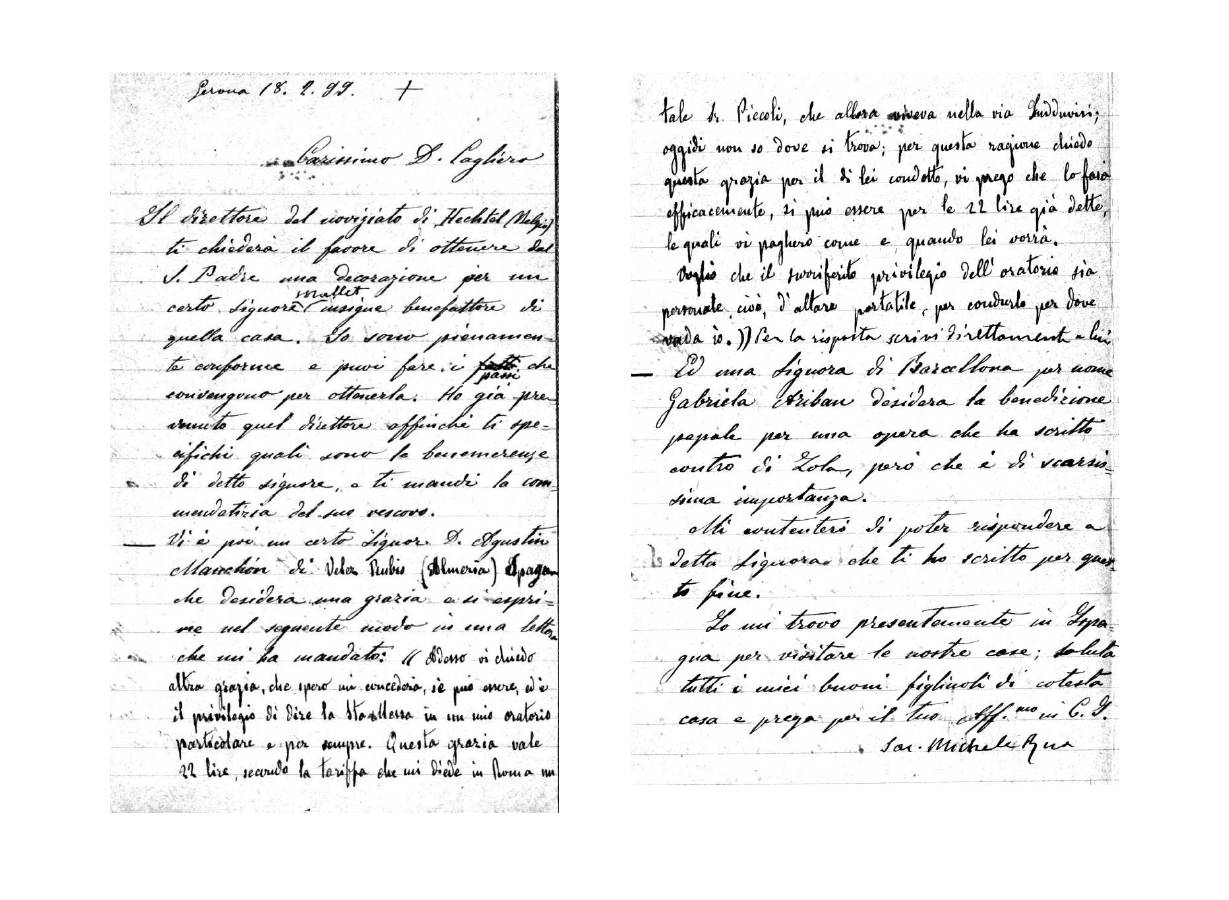 Gerona 18. 2. 99. +
Carissimo D. Cagliero
Il direttore del noviziato di Hechtel (Belgio)
ti chiederà il favore di ottenere dal
S. Padre una decorazione per un
certo signore mallet (insigne benefattore di
quella casa. Io sono pienamen-
te conforme e puoi fare i passi che
convengono per ottenerla. Ho già pre
venuto quel direttore affinchè ti spe-
cifichi quali sono le benemerenze
di detto signore, e ti mandi la com-
mendatizia del suo vescovo.
— Vi è poi un certo Signor D. Agustin
Manchón di Velez Rubio (Almeria) Spagna
che desidera una grazia e si espri-
me nel seguente modo in una lettera
che mi ha mandato: (( Adesso vi chiedo
altra grazia, che spero mi concederà, se può essere, ed è
il privilegio di dire la Sta Messa in un mio oratorio
particolare e per sempre. Questa grazia vale
22 lire, secondo la tariffa che mi diede in Roma un
tale Sr. Piccoli, che allora viveva nella via
oggidì non so dove si trova; per questa ragione chiedo
questa grazia per il di lei condotto, vi prego che lo farà
efficacemente, si può essere per le 22 lire già dette,
le quali vi pagherò come e quando lei vorrà.
Voglio che il surriferito privilegio dell'oratorio sia
personale cioè, d'altare portatile, per condurlo per dove
vada io. )) Per la risposta scrivi direttamente a lui
— Ed una Signora di Barcellona per nome
Gabriela Ariban desidera la benedizione
papale per una opera che ha scritto
contro di Zola, però che è di scarsis-
sima importanza.
Mi contenterò di poter rispondere a
detta Signora che ti ho scritto per ques-
to fine.
Io mi trovo presentemente in Ispa-
gna per visitare le nostre case; saluta
tutti i miei buoni figliuoli di cotesta
casa e prega per il tuo Aff.mo in C. J.
Sac. Michele Rua